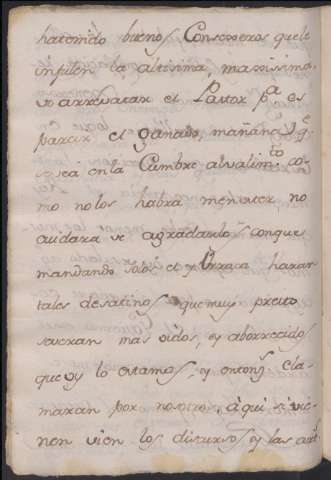 haciendo buenos Consesseros que le
inspiten la altisima, massisima,
arrevatar el Pastor pa. es
parcir el ganado, mañana q.e
se vea en la Cumbre al valim.to co
mo no los habra menester, no
cuidara de agradarlos conque
mandando solo el y Urraca haran
tales desatinos que muy presto
se veran mas vidos, y aborrecidos
que oy lo estamos, y entons. cla
maran por nosotros, aqui si vie
nen vien los discursos y las art